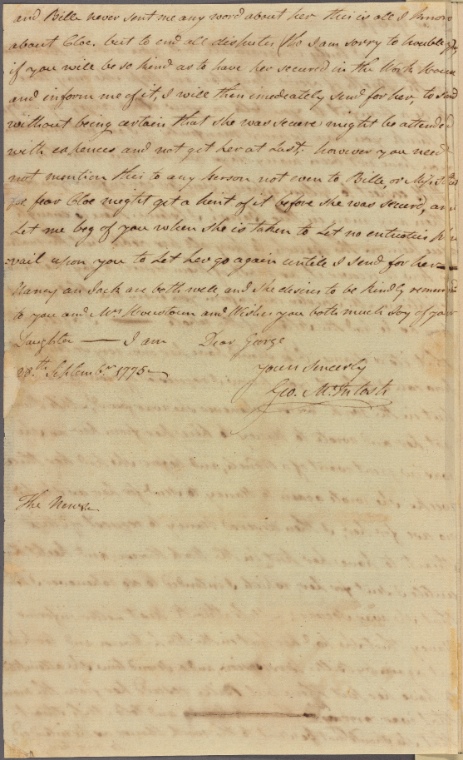 and Bille never sent me any word about her this is all I know
about Cloe. but to end all disputes tho I am sorry to trouble you
if you will be so kind as to have her secured in the Work House
and inform me of it, I will then imediately send for her, to send
without being certain that she was secure might be attended
with expences and not get her at Last; however you need
not mention this to any person not even to Bille, or
for fear Cloe might get a hent of it before she was secured, and
Let me beg of you when she is taken to Let no entreaties pre
vail upon you to Let her go again untill I send for her
Nancy an Jack are both well, and she desires to be kindly remem
to you and Mrs and Wishes you both much Joy of your
Daughter — I am Dear George
28th. September 1775 — yours Sincerely
Geo. McIntosh
The